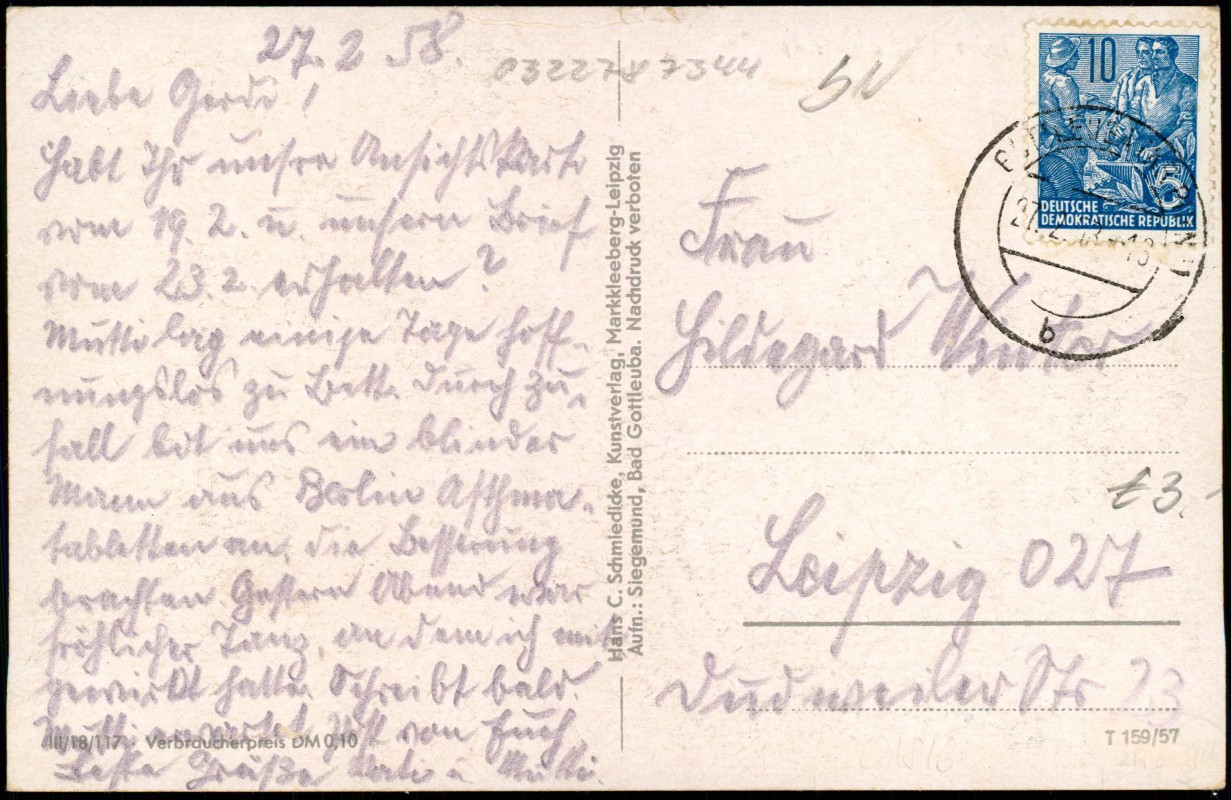 27. 2. 58
Liebe Gerdi!
Habt Ihr unsre Ansichtskarte
vom 19. 2. u. unsern Brief
vom 23. 2. erhalten?
Mutti lag einige Tage hoff-
nungslos zu Bett. Durch Zu-
fall bot uns ein blinder
Mann aus Berlin Asthma-
tabletten an, die Besserung
brachten. Gestern Abend war
fröhlicher Tanz, an dem ich mit
gewirkt hatte. Schreibt bald.
Mutti wartet Post von Euch
Beste Grüße Vati u Mutti.
III/18/117 · Verbraucherpreis DM 0,10
Hans C. Schmiedicke, Kunstverlag, Markkleeberg-Leipzig
Aufn.: Siegemund, Bad Gottleuba. Nachdruck verboten
0322787344
10
5
DEUTSCHE
DEMOKRATISCHE REPUBLIK
b
Frau
Hildegard Winter
£3.
Leipzig O27
Dudweiler Str 23
T 159/57